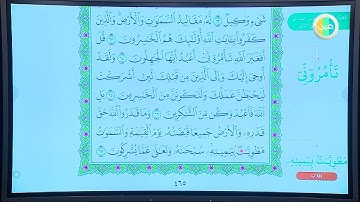 شَيْءٍ وَكِيلٌ ۝ لَّهُ مَقَالِيدُ السَّمَٰوَٰتِ وَالْأَرْضِ وَالَّذِينَ
كَفَرُوا بِـَٔايَٰتِ اللَّهِ أُولَٰٓئِكَ هُمُ الْخَٰسِرُونَ ۝ قُلْ
أَفَغَيْرَ اللَّهِ تَأْمُرُوٓنِّىٓ أَعْبُدُ أَيُّهَا الْجَٰهِلُونَ ۝ وَلَقَدْ
أُوحِىَ إِلَيْكَ وَإِلَى الَّذِينَ مِن قَبْلِكَ لَئِنْ أَشْرَكْتَ
لَيَحْبَطَنَّ عَمَلُكَ وَلَتَكُونَنَّ مِنَ الْخَٰسِرِينَ ۝ بَلِ
اللَّهَ فَاعْبُدْ وَكُن مِّنَ الشَّٰكِرِينَ ۝ وَمَا قَدَرُوا اللَّهَ حَقَّ
قَدْرِهِۦ وَالْأَرْضُ جَمِيعًا قَبْضَتُهُۥ يَوْمَ الْقِيَٰمَةِ وَالسَّمَٰوَٰتُ
مَطْوِيَّٰتٌۢ بِيَمِينِهِۦ سُبْحَٰنَهُۥ وَتَعَٰلَىٰ عَمَّا يُشْرِكُونَ ۝
٤٦٥
تَأْمُرُوٓنِّىٓ
مَطْوِيَّٰتٌۢ بِيَمِينِهِۦ
إقلاب